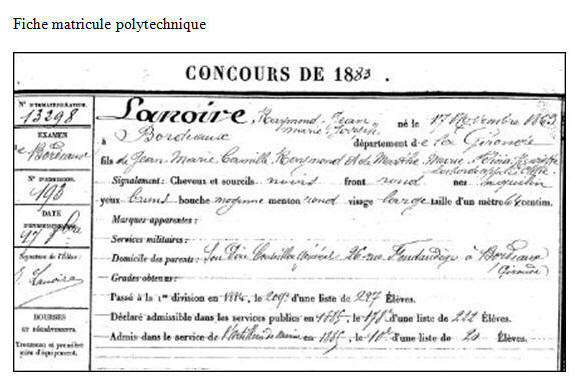 Fiche matricule polytechnique
CONCOURS DE 1883.
N° D'IMMATRICULATION
13298
EXAMEN
de Bordeaux
N° D'ADMISSION.
193
DATE
17
Signature de l'Élève:
Lanoire
BOURSES
ET
Trousseau et première
mise d'équipement.
Lanoire, Raymond-Jean
Marie né le 17 Novembre 1863
à Bordeaux département de la Gironde
fils de Jean Marie Camille Raymond et de Marthe Marie
Signalement: Cheveux et sourcils noirs front rond nez aquilin
yeux bruns bouche moyenne menton rond visage large taille d'un mètre centim.
Marques apparentes:
Services militaires:
Domicile des parents: Son Père Conseiller Général 26 rue à Bordeaux
Gironde
Grades obtenus:
Passé à la 1re division en 1884, le 209e d'une liste de 227 Élèves.
Déclaré admissible dans les services publics en 1885, le 178e d'une liste de 222 Élèves.
Admis dans le service de l'Artillerie de marine en 1885, le d'une liste de Élèves.